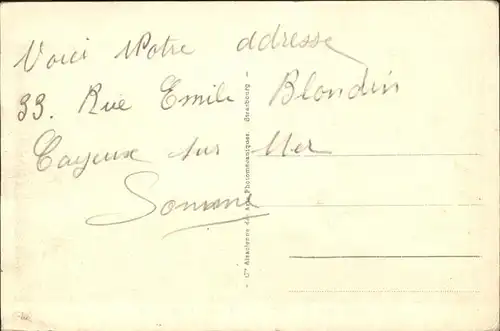 Voici Notre adresse
33. Rue Emile Blondin
Cayeux sur Mer
Somme
- Cie Alsacienne des Arts Photomécaniques, Strasbourg -